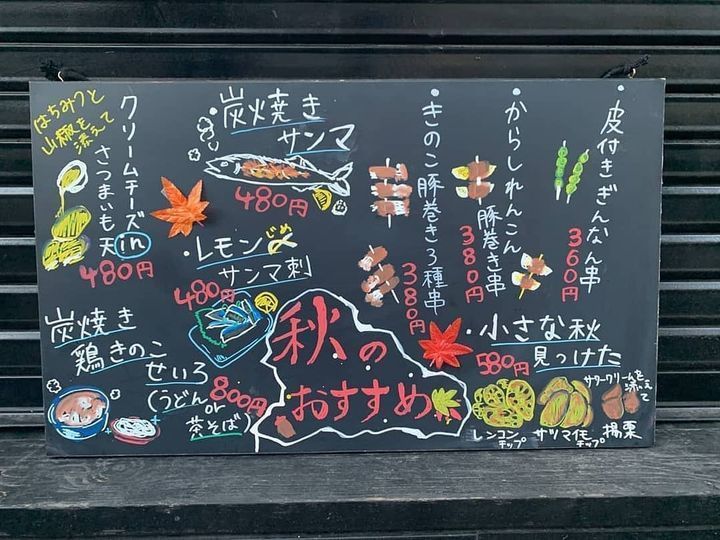 ・皮付きぎんなん串
360円
・からしれんこん
豚巻き串
380円
・きのこ豚巻き3種串
380円
炭焼き
サンマ
480円
・レモン〆
じめ
サンマ刺
480円
クリームチーズin
さつまいも天
はちみつと
山椒を
添えて
480円
炭焼き
鶏きのこ
せいろ
(うどん
or
茶そば)
800円
秋の
おすすめ
・小さな秋
見っけた
580円
レンコン
チップ
サツマイモ
チップ
揚栗
サワークリームを
添えて